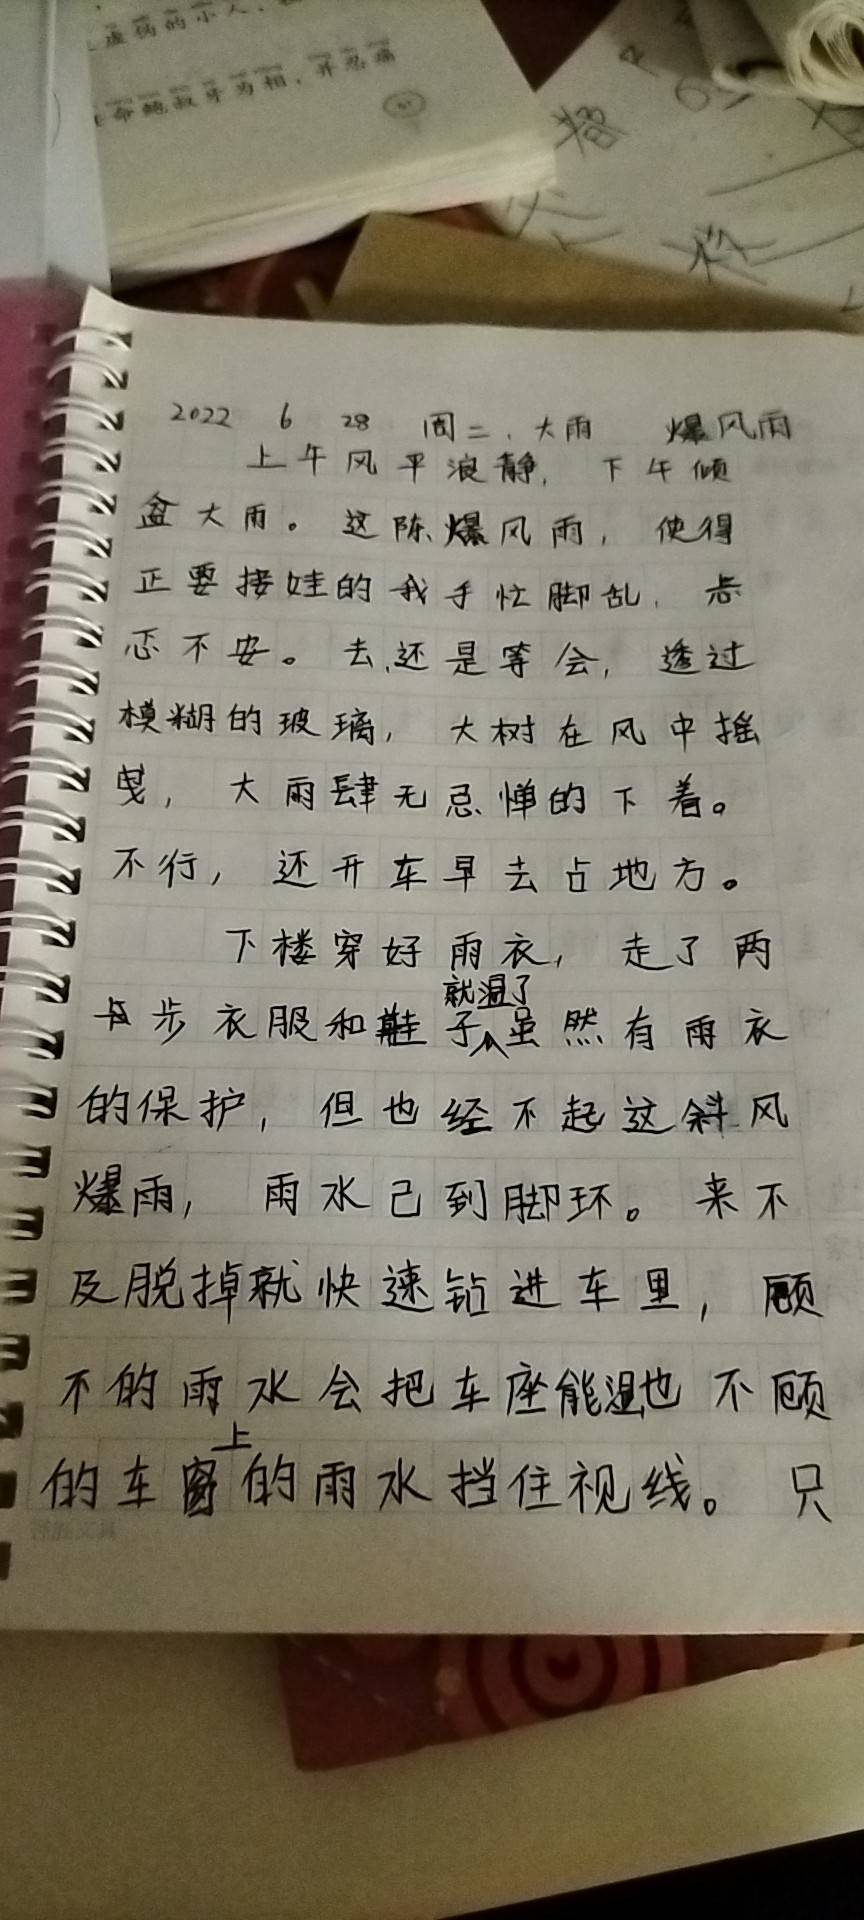 虚伪的小人
命鲍叔牙为相，并忍痛
2022 6 28 周二、大雨 爆风雨
上午风平浪静，下午倾
盆大雨。这陈爆风雨，使得
正要接娃的我手忙脚乱，忐
忑不安。去，还是等会，透过
模糊的玻璃，大树在风中摇
曳，大雨肆无忌惮的下着。
不行，还开车早去占地方。
下楼穿好雨衣，走了两
步衣服和鞋子就湿了虽然有雨衣
的保护，但也经不起这斜风
爆雨，雨水己到脚环。来不
及脱掉就快速钻进车里，顾
不的雨水会把车座能湿也不顾
的车窗上的雨水挡住视线。只